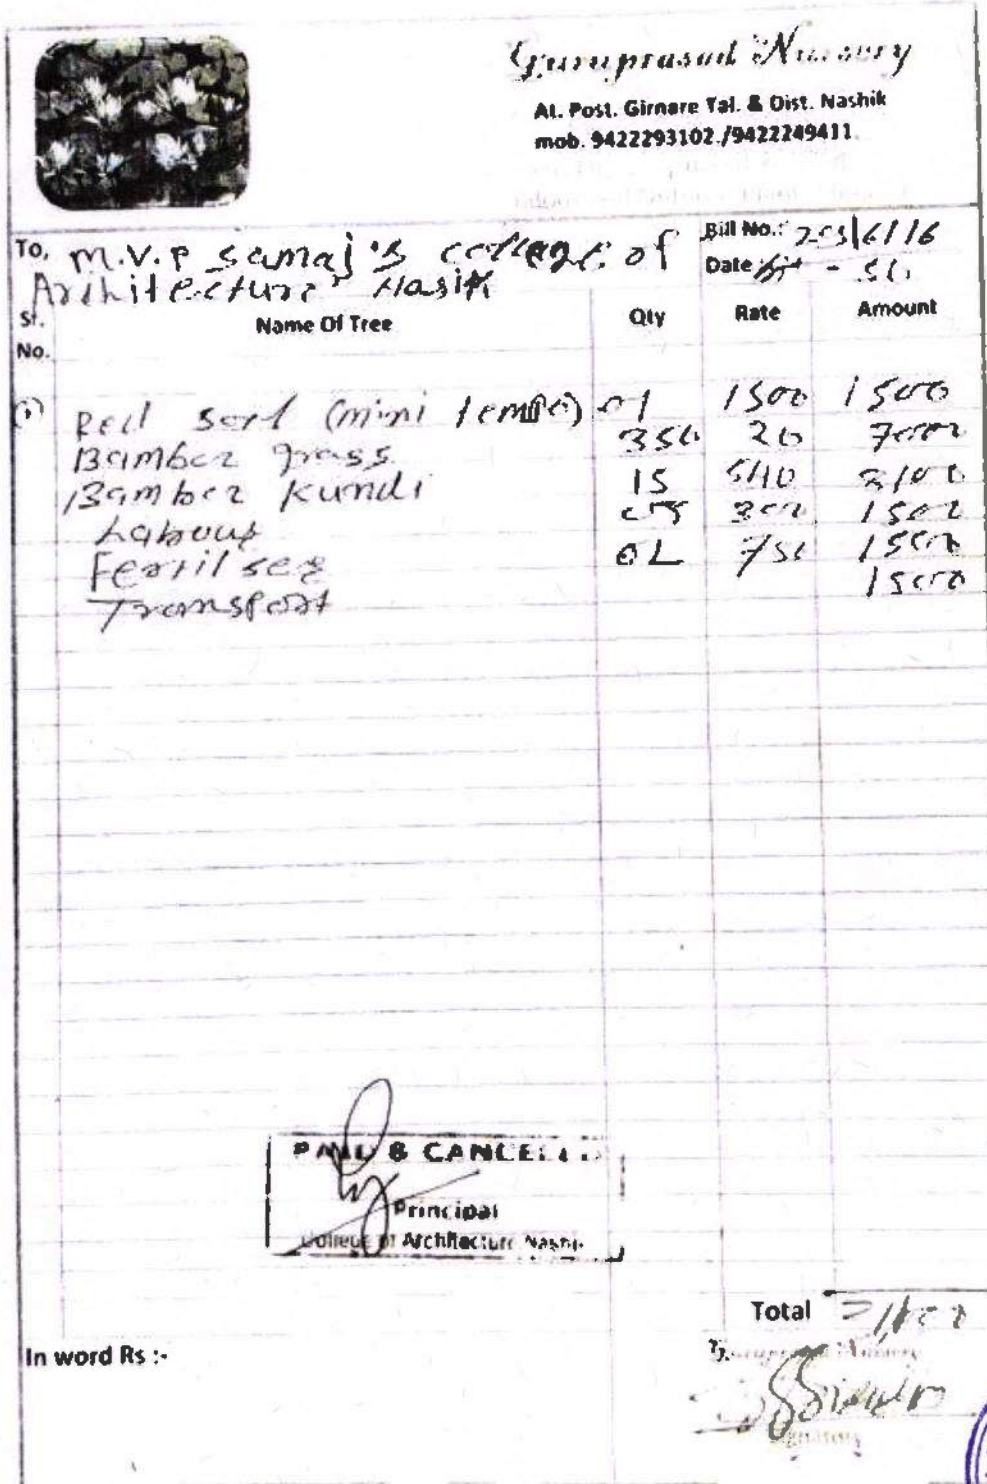 Guruprasad Nursery
At. Post. Girnare Tal. & Dist. Nashik
mob. 9422293102./9422249411.
To, M.V.P Samaj's college of
Architecture Nasik
Bill No.:
Date
Sr. No. Name Of Tree Qty Rate Amount
① Red (mini tempo) 01 1500 1500
Bamboo grass 350 20 7000
Bamboo Kundi 15
Labour 05 300 1500
Fertilser 750 1500
Transport 1500
PAID & CANCELLED
Principal
College of Architecture Nashik
Total
In word Rs :-
Guruprasad Nursery
Signatory